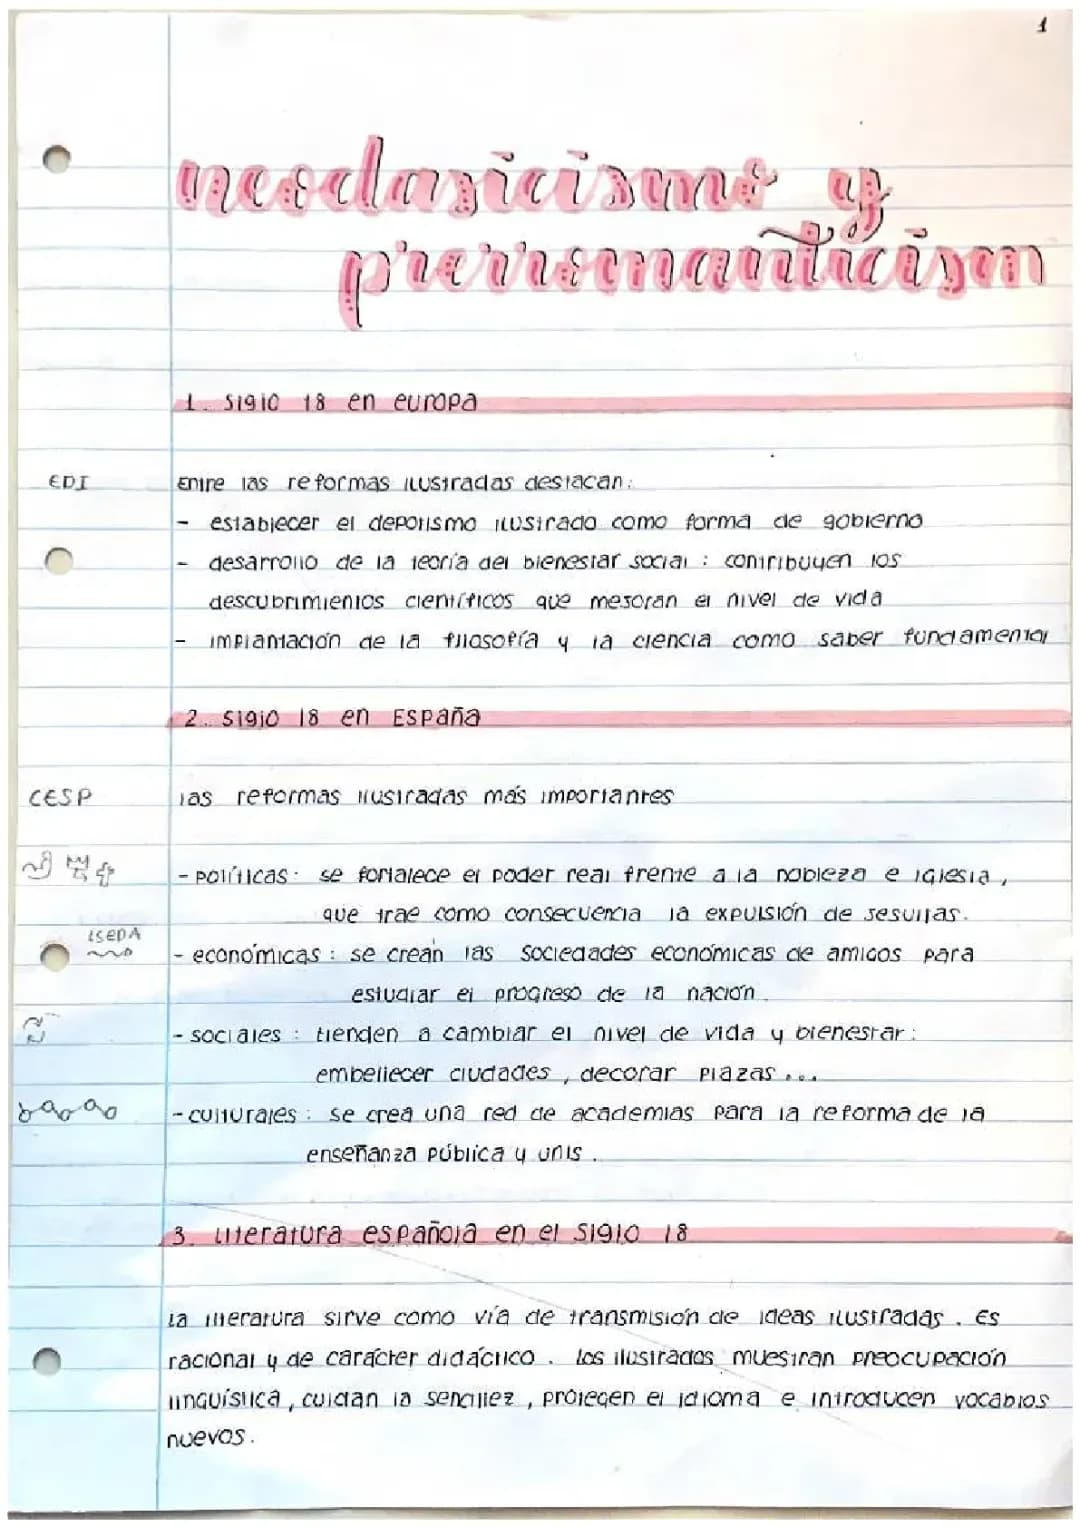 1
neoclasicismo y
prerromanticism
1. Siglo 18 en europa
EDI
Entre las reformas ilustradas destacan:
- establecer el depotismo ilustrado como forma de gobierno
- desarrollo de la teoría del bienestar social : contribuyen los
descubrimientos científicos que mejoran el nivel de vida
- implamación de la filosofía y la ciencia como saber fundamental
2. Siglo 18 en España
CESP
las reformas ilustradas más importantes
- políticas: se fortalece el poder real frente a la nobleza e iglesia,
que trae como consecuencia la expulsión de jesuitas.
LSEDA
- económicas : se crean las Sociedades económicas de amigos para
estudiar el progreso de la nación.
- sociales : tienden a cambiar el nivel de vida y bienestar:
embellecer ciudades, decorar plazas...
- culturales : se crea una red de academias para la reforma de la
enseñanza pública y unis.
3. Literatura española en el Siglo 18
La literatura sirve como vía de transmisión de ideas ilustradas. Es
racional y de carácter didáctico. los ilustrados muestran preocupación
lingüística, cuidan la sencillez, protegen el idioma e introducen vocablos
nuevos.